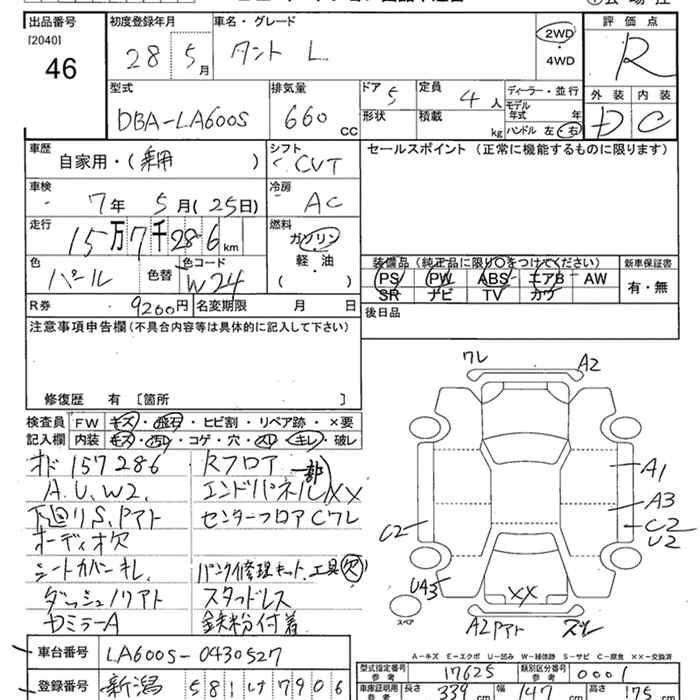 出品番号 初度登録年月 車名・グレード 評価点
[2040]
46 28 5月 タント L 2WD・4WD R
型式 排気量 ドア 5 定員 4人 ディーラー・並行 外装 内装
DBA-LA600S 660 CC 形状 積載 kg モデル年式 年 D C
ハンドル 左・右
車歴 シフト セールスポイント (正常に機能するものに限ります)
自家用・( ) CVT
車検 冷房
7年 5月(25日) AC
走行 燃料
15万7千286km ガソリン・軽・油
( )
色 パール 色替 色コード W24
装備品(純正品に限り○をつけてください) 新車保証書
PS PW ABS エアB AW 有・無
SR ナビ TV カワ
R券 9200円 名変期限 月 日 後日品
注意事項申告欄(不具合内容等は具体的に記入して下さい)
修復歴 有 [箇所 ]
検査員記入欄 FW キズ・飛石・ヒビ割・リペア跡・×要
内装 キズ・汚レ・コゲ・穴・スレ・キレ・破レ
オド157286 Rフロア一部
A.U.W2. エンドパネルXX
下回りS.Pアト センターフロアCワレ
オーディオ欠
シートカバーキレ. パンク修理キット.工具欠
ダッシュノリアト スタッドレス
Dミラ-A 鉄粉付着
ワレ A2
A1
A3
C2 C2
U2
UA3
XX
スペア A2Pアト ズレ
A-キズ E-エクボ U-凹み W-補修跡 S-サビ C-腐食 XX-交換済
車台番号 LA600S-0430527
型式指定番号 参考 17625 類別区分番号 参考 0001
登録番号 新潟 581 け 7906
車庫証明用 参考 長さ 339cm 幅 147cm 高さ 175cm